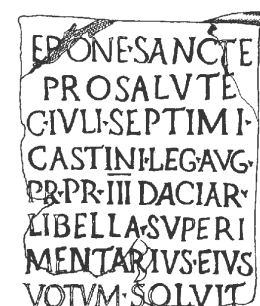 EPONE·SANCTE
PROSALVTE
C·IVLI·SEPTIMI·
CASTINI·LEG·AVG·
PR·PR·III DACIAR·
LIBELLA·SVPERI
MENTARIVS·EIVS
VOTVM·SOLVIT